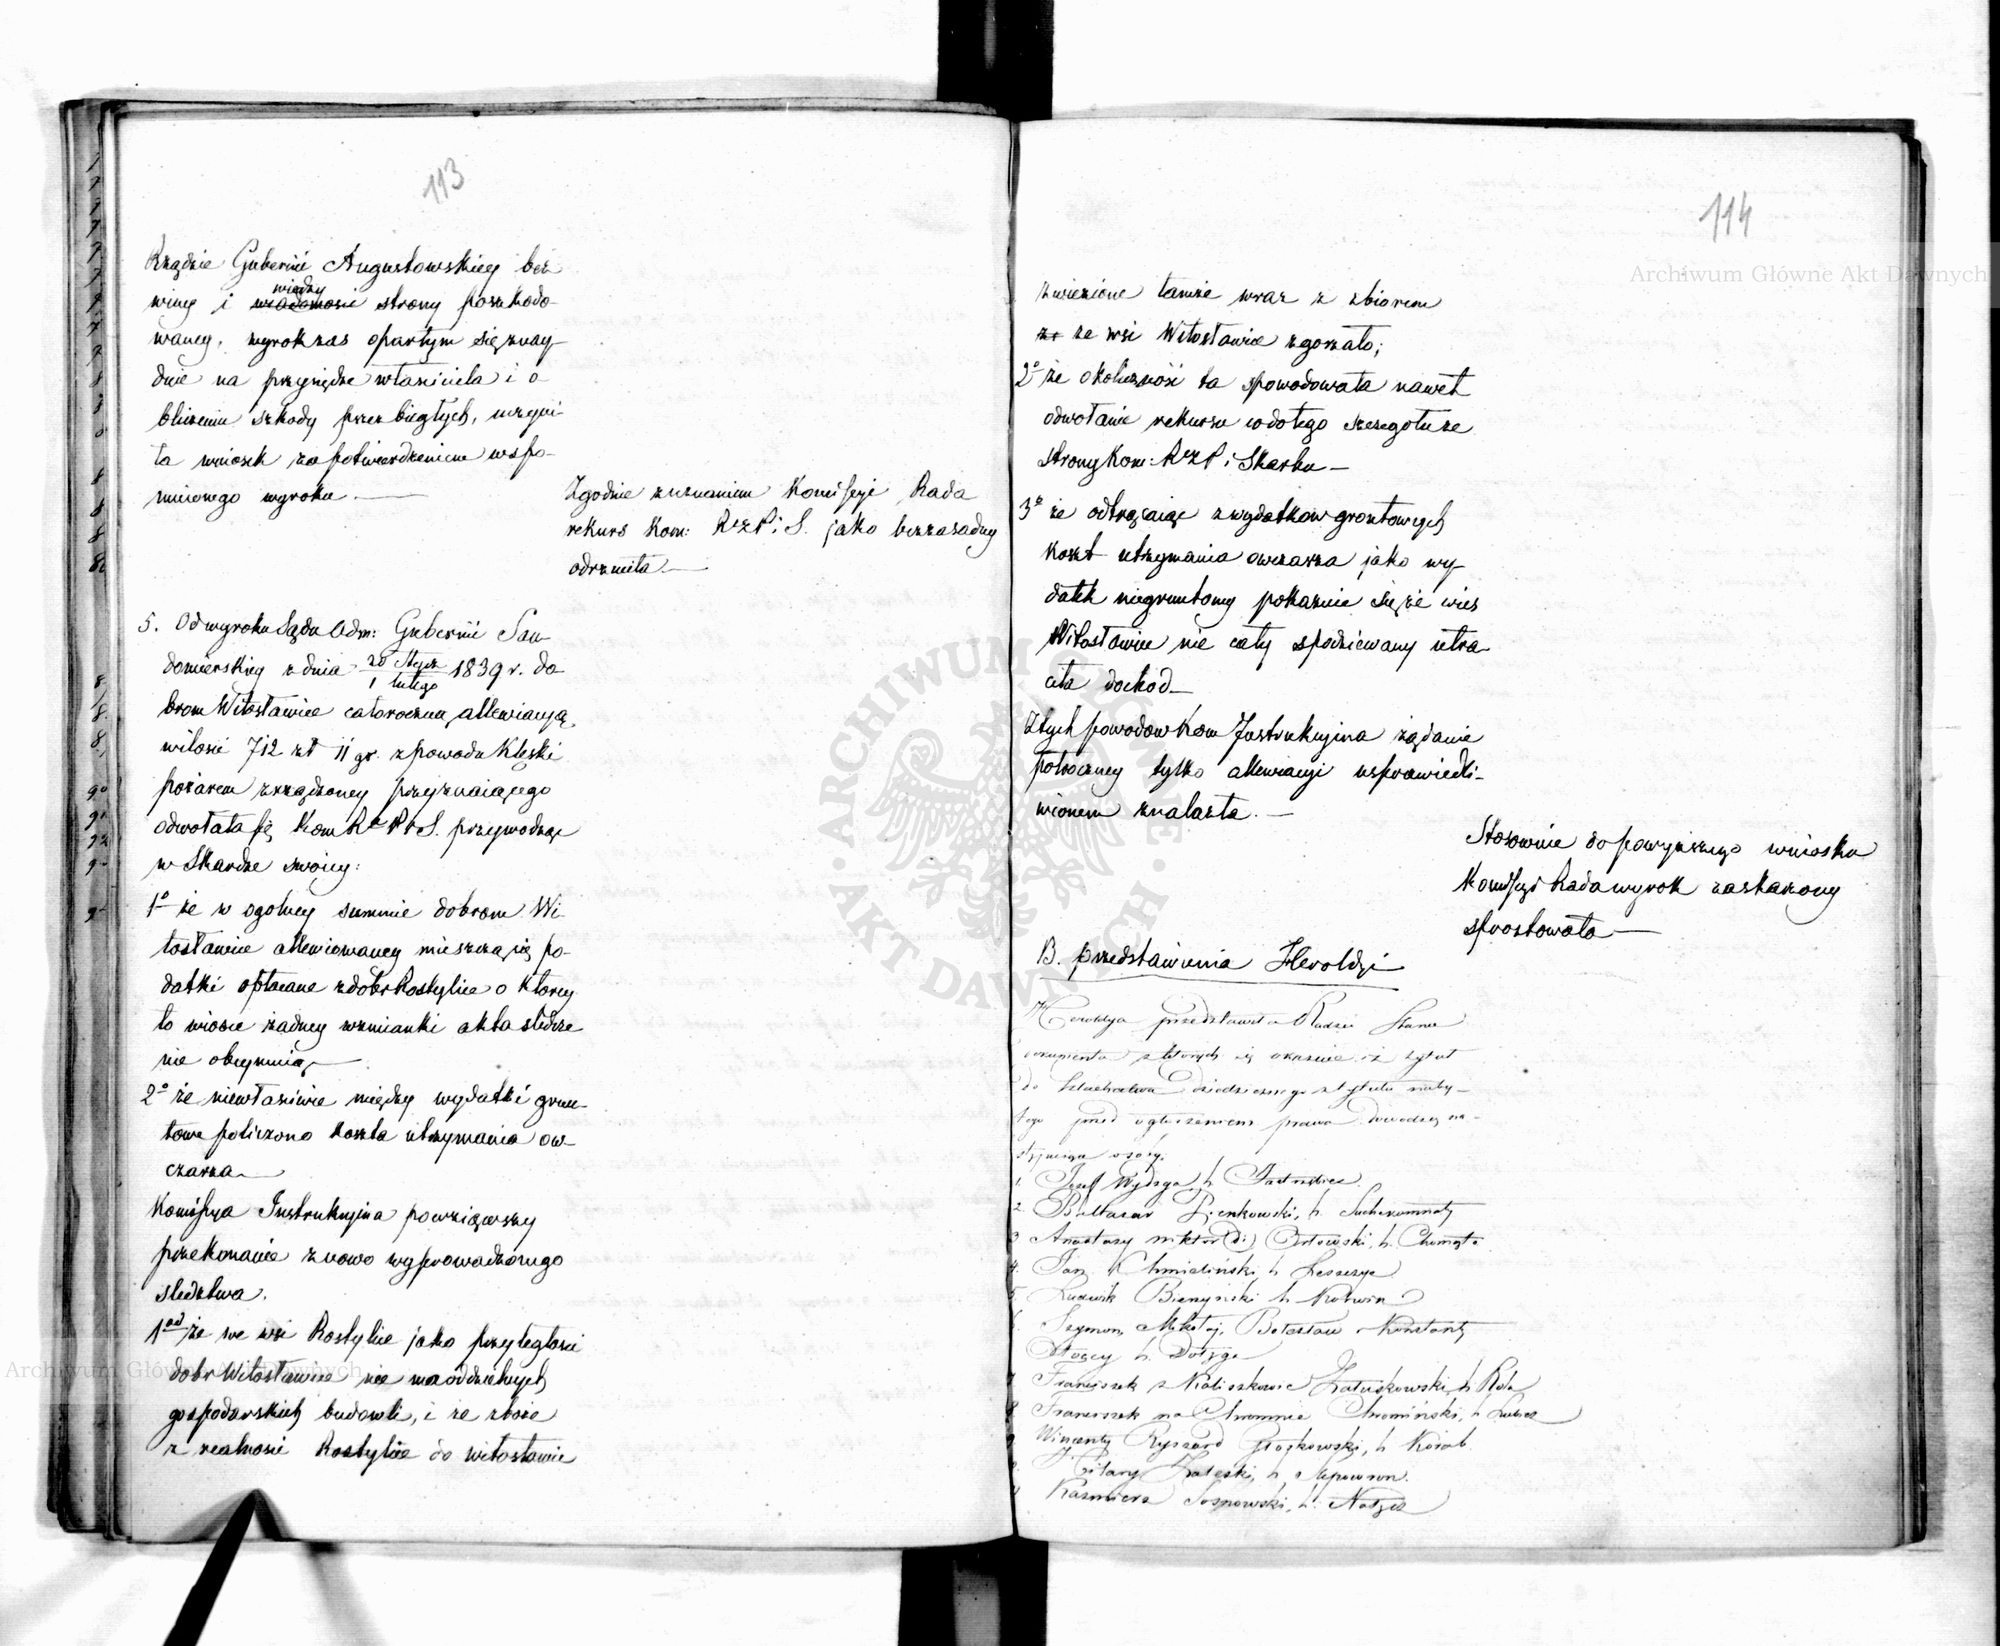 113
Rządzie Gubernii Augustowskiey bez
winy i wiadomości wiedzy strony poszkodo-
waney, wyrok zas opartym się znay-
duie na przysiędze właściciela i o-
bliczeniu szkody przez biegłych, uczyni-
ła wniosek za potwierdzeniem wspo-
mnionego wyroku.
Zgodnie z uznaniem Kommissyi Rada
rekurs Kom: R P i S. jako bezzasadny
odrzuciła.
5. Od wyroku Sądu Adm: Gubernii San-
domierskiey z dnia 20 Stycz / 1 lutego 1839 r. do-
brom Witosławice całoroczną allewiacyą
w ilości 712 zł 11 gr. z powodu klęski
pożarem zrządzoney przyznaiącego
odwołała się Kom R P i S. przywodząc
w Skardze swoiey:
1º że w ogolney summie dobrom Wi-
tosławice allewiowaney mieszczą się po-
datki opłacane z dobr Rostylice o ktorey
to wiosce żadney wzmianki akta śledcze
nie obeymuią.
2º że niewłaściwie między wydatki grun-
towe policzono koszta utrzymania ow-
czarza.
Kommissya Instrukcyina powziąwszy
przekonanie z nowo wyprowadzonego
śledztwa.
1od że we wsi Rostylice jako przyległości
dobr Witosławice nie ma oddzielnych
gospodarskich budowli, i że zboże
z realności Rostylice do Witosławic
114
zwiezione tamże wraz z zbiorem
ze wsi Witosławice zgorzało;
2º że okoliczność ta spowodowała nawet
odwołanie rekursu co do tego szczegołu ze
strony Kom: R P i Skarbu
3º że odtrącaiąc z wydatkow gruntowych
koszt utrzymania owczarza jako wy-
datek niegruntowy pokazuie się że wieś
Witosławice nie cały spodziewany utra-
ciła dochod.
Z tych powodow Kom Instrukcyina żądanie
połroczney tylko allewiacyi usprawiedli-
wionem znalazła.
Stosownie do powyższego wniosku
Kommissyi Rada wyrok zaskarżony
sprostowała
B. przedstawienia Heroldyi
Heroldya przedstawiła Radzie Stanu
dokumenta z ktorych się okazuie iż tytuł
do szlachectwa dziedzicznego z tytułu naby-
tego przed ogłoszeniem prawa dowodzą na-
stępuiące osoby.
1. Jozef Wydzga, h. Jastrzębiec.
2. Baltazar Pienkowski, h. Suchekomnaty
3 Anastazy Wiktor (2 i) Orłowski, h. Chomąto
4. Jan Chmieliński, h. Leszczyc
5. Ludwik Bienyński h. Kotwica
6. Szymon, Mikołaj, Bolesław i Konstanty
h. Dołęga
7 Franciszek z Kaliszkowic Załuskowski, h. Rola
8 Franciszek na Chromnie Chromiński, h. Lubicz
9 Wincenty Ryszard h. Korab.
Hilary Załęski, h. Slepowron.
Kazimierz Sosnowski, h. Nałęcz
Archiwum Główne Akt Dawnych
Archiwum Główne Akt Dawnych
ARCHIWUM GŁÓWNE · AKT DAWNYCH ·